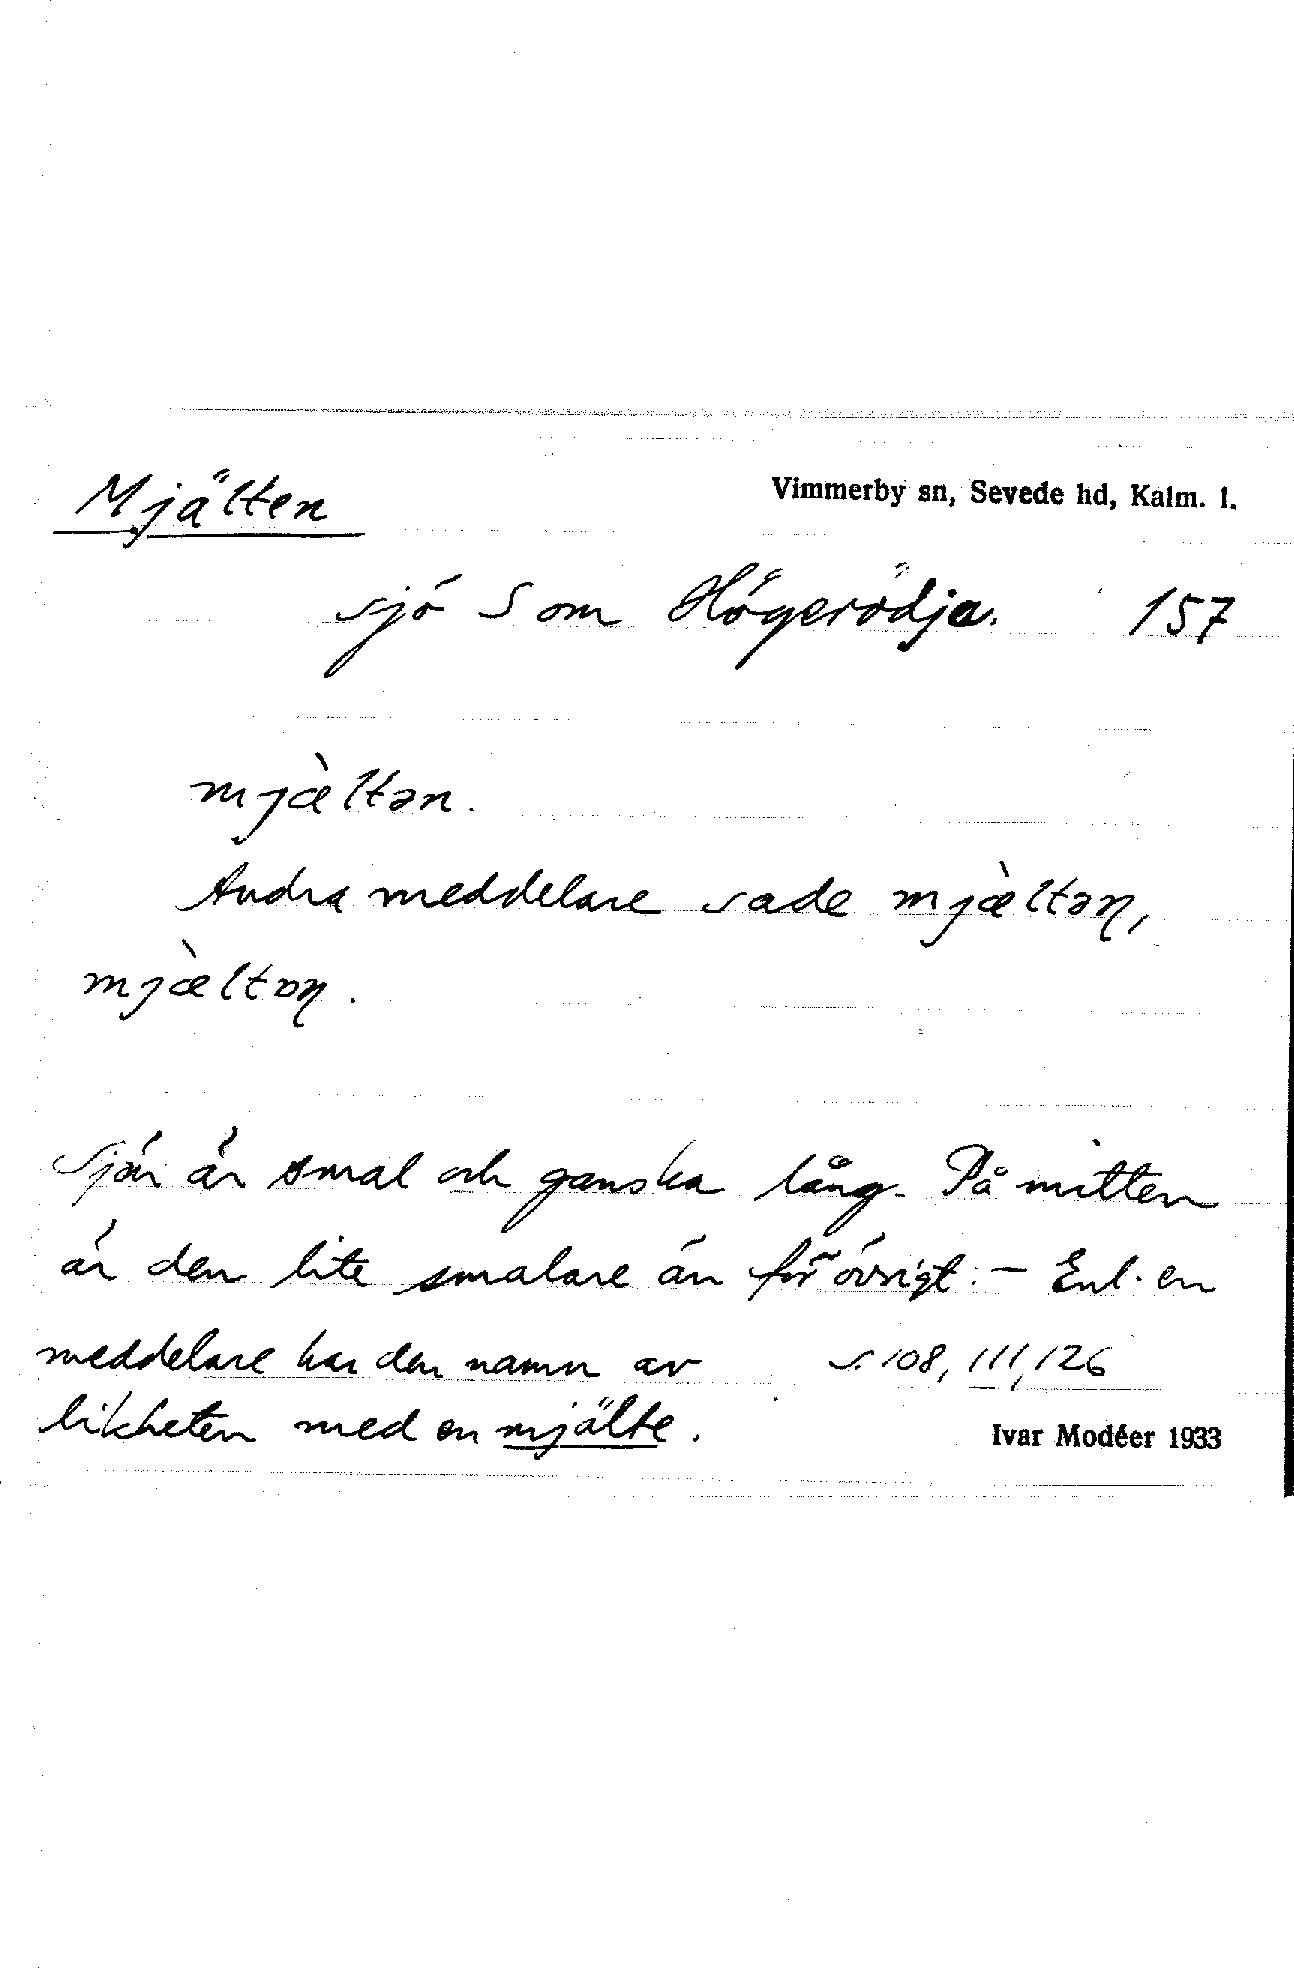 Mjälten
Vimmerby sn, Sevede hd, Kalm. l.
sjö S om Högerödja. 157
mjæ̀ltən.
Andra meddelare sade mjæ̀ltəɳ,
mjæ̀ltɒɳ.
Sjön är smal och ganska lång. På mitten
är den lite smalare än för övrigt. – Enl. en
meddelare har den namn av s. 108, 111, 126
likheten med en mjälte.
Ivar Modéer 1933